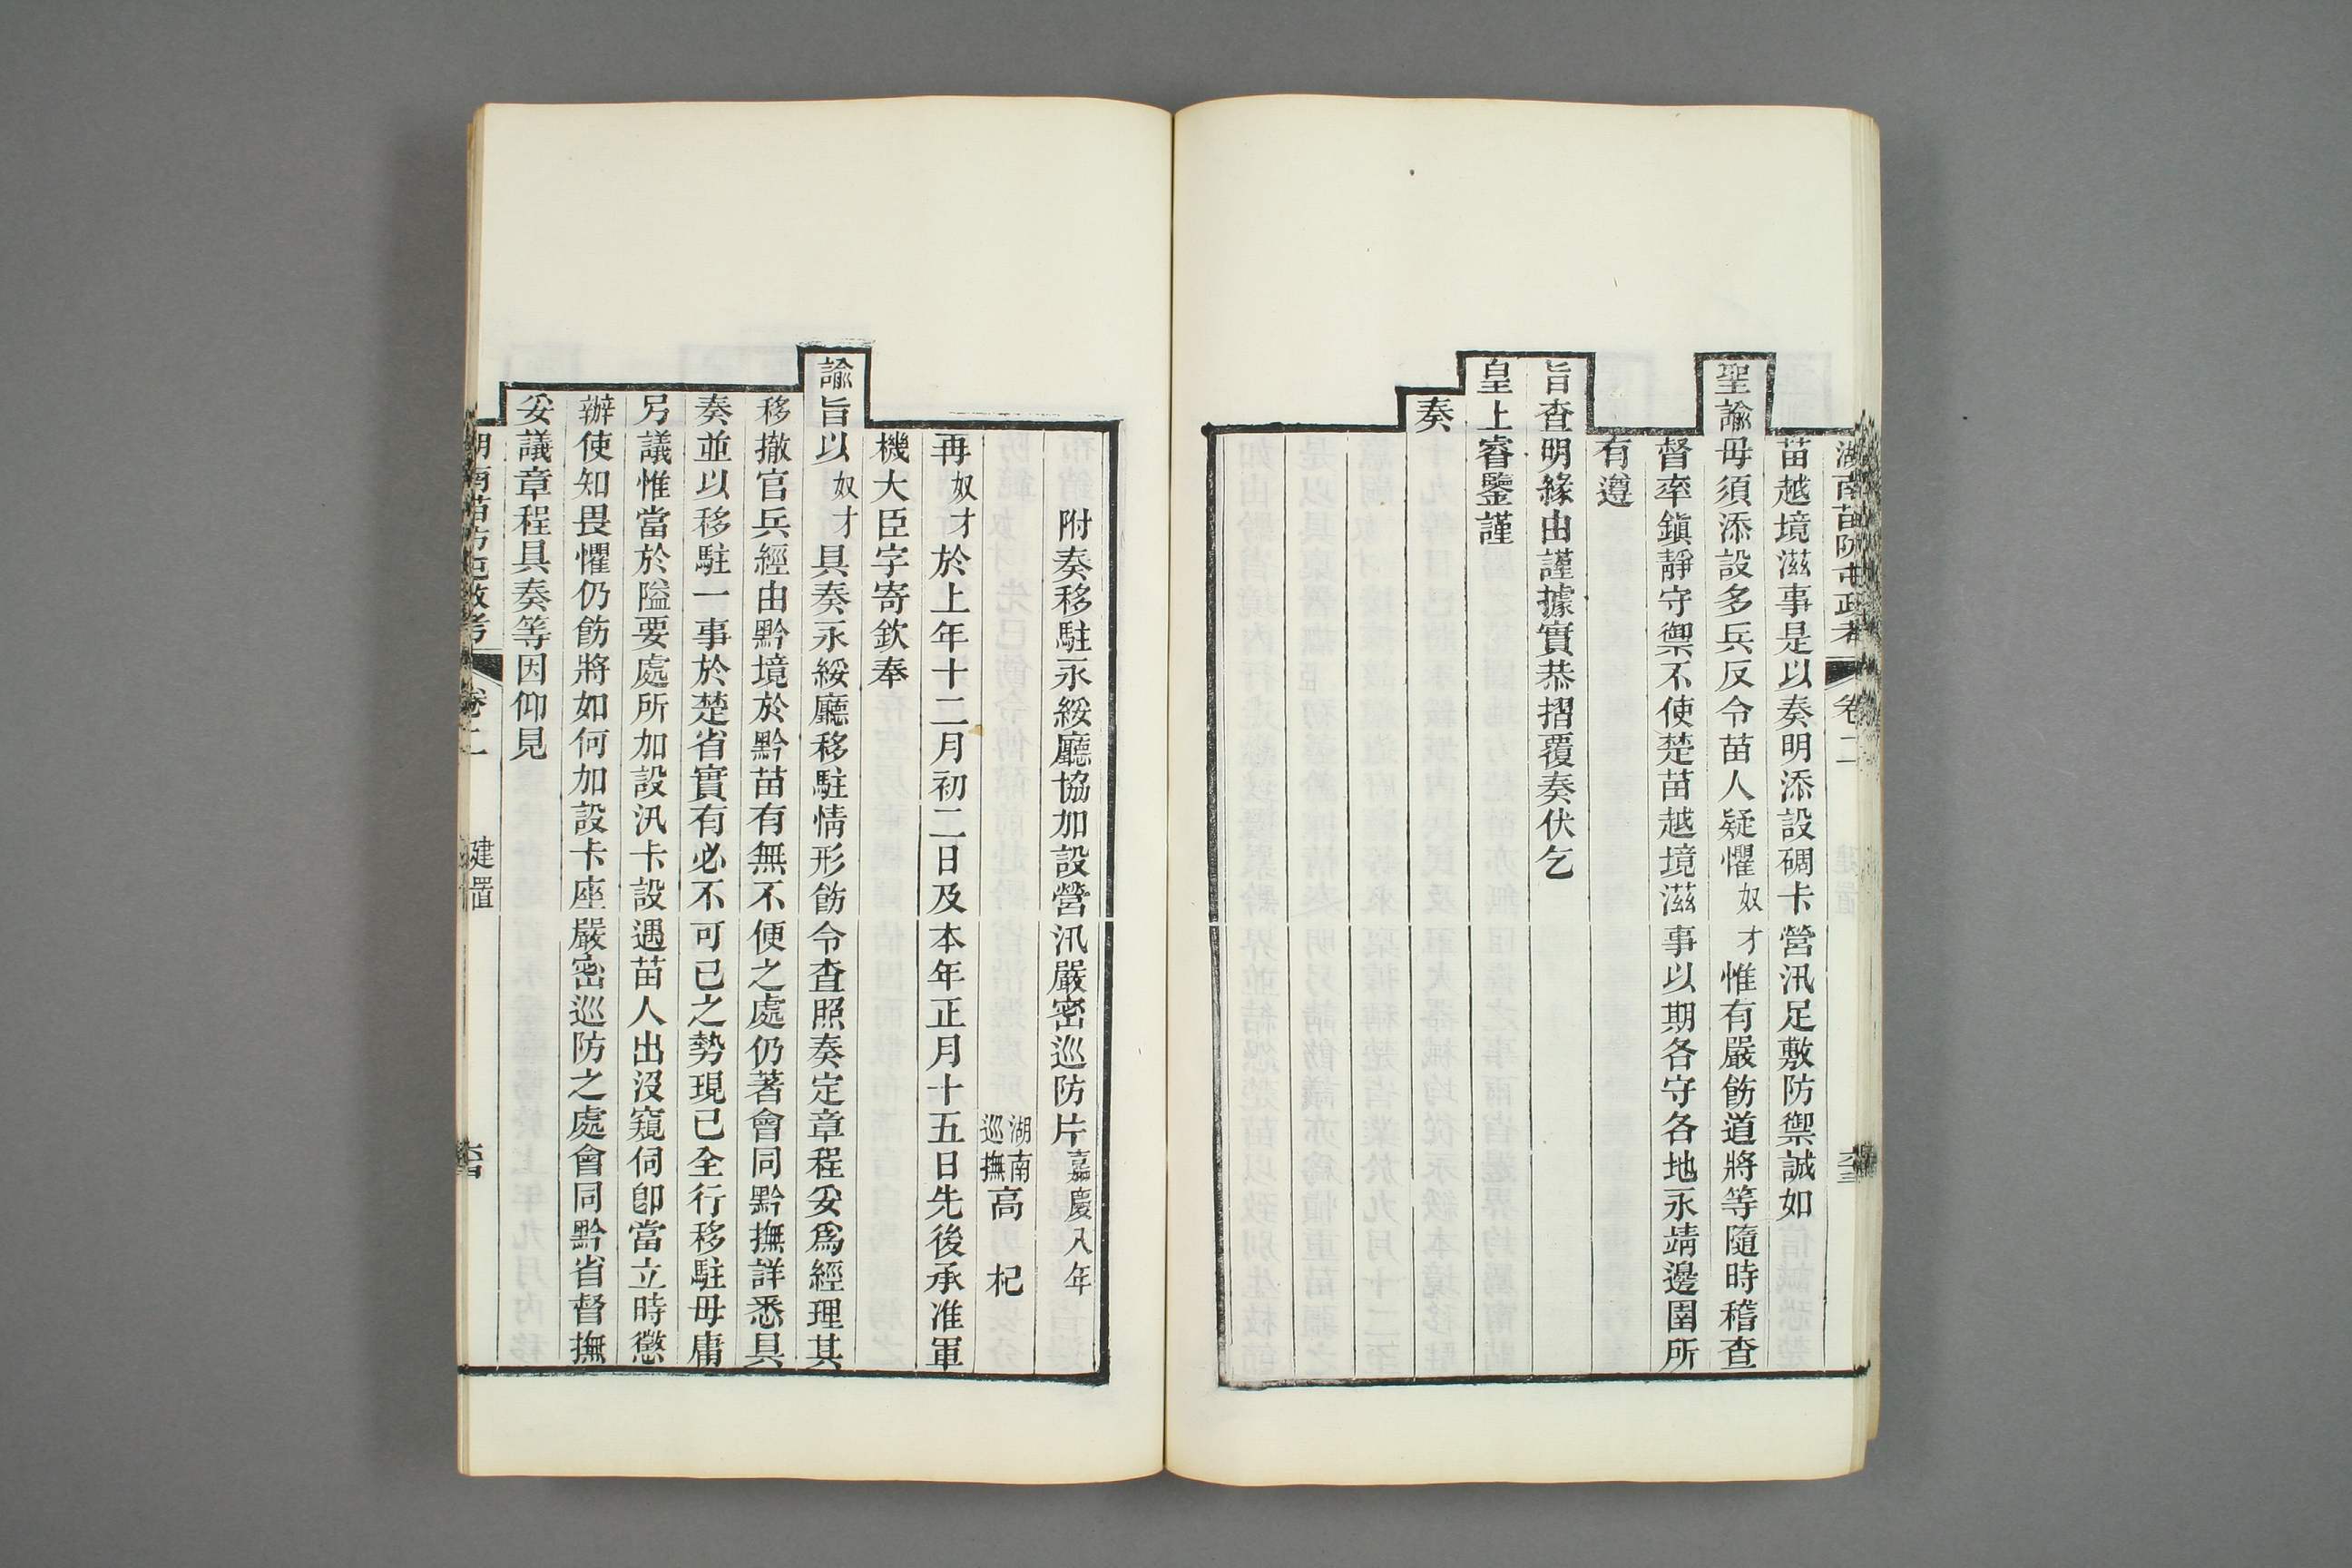 湖南苗防屯政考 卷二
苗越境滋事是以奏明添設碉卡營汛足敷防禦誠如
聖諭毋須添設多兵反令苗人疑懼奴才惟有嚴飭道將等隨時稽查
督率鎮靜守禦不使楚苗越境滋事以期各守各地永靖邊圉所
有遵
旨查明緣由謹據實恭摺覆奏伏乞
皇上睿鑒謹
奏
附奏移駐永綏廳協加設營汛嚴密巡防片嘉慶八年
湖南巡撫高杞
再奴才於上年十二月初二日及本年正月十五日先後承准軍
機大臣字寄欽奉
諭旨以奴才具奏永綏廳移駐情形飭令查照奏定章程妥爲經理其
移撤官兵經由黔境於黔苗有無不便之處仍著會同黔撫詳悉具
奏並以移駐一事於楚省實有必不可已之勢現已全行移駐毋庸
另議惟當於隘要處所加設汛卡設遇苗人出沒窺伺卽當立時懲
辦使知畏懼仍飭將如何加設卡座嚴密巡防之處會同黔省督撫
妥議章程具奏等因仰見
湖南苗防屯政考 卷二 建置 六四